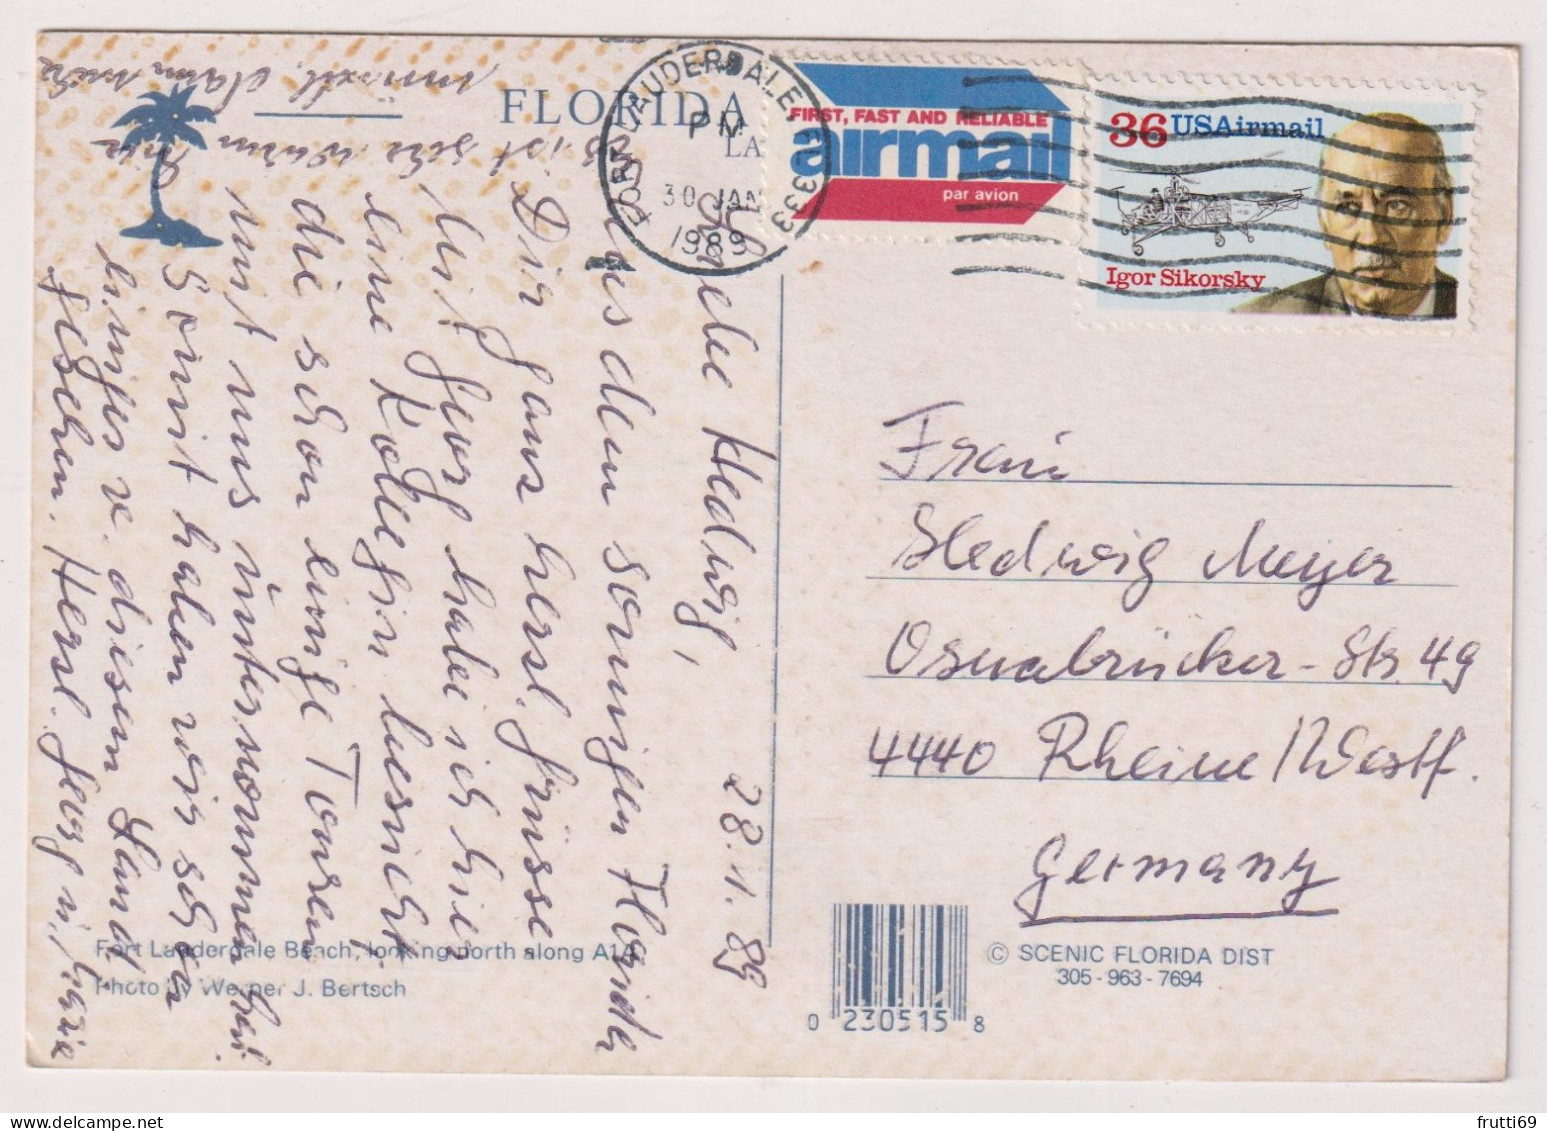 FLORIDA
LA
FORT LAUDERDALE FL 333
PM
30 JAN
1989
FIRST, FAST AND RELIABLE
airmail
par avion
36 USAirmail
Igor Sikorsky
Liebe Hedwig, 28.1.89
Aus dem sonnigen Florida
Dir ganz herzl. Grüsse
Mit Georg habe ich hier
eine Kollegin besucht
die schon einige Touren
mit uns unternommen hat.
Somit haben wir schon
einiges v. diesem Land
gesehen. Herzl. Georg u.
es ist sehr warm
Frau
Hedwig Meyer
Osnabrücker-Str. 49
4440 Rheine/Westf.
Germany
Fort Lauderdale Beach, looking north along A1A
Photo by Werner J. Bertsch
0 230515 8
© SCENIC FLORIDA DIST
305-963-7694
frutti69